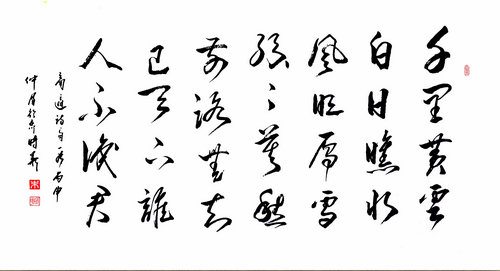 千里黄雲
白日曛北
風吹雁雪
紛々莫愁
前路無知
己天下誰
人不識君
高適詩一首丙申
仲夏於